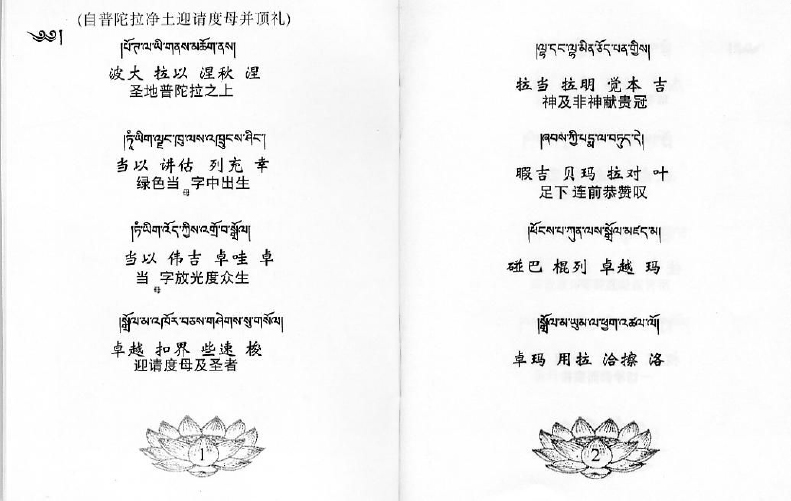 (自普陀拉净土迎请度母并顶礼)
༄༅།
།པོ་ཏ་ལ་ཡི་གནས་མཆོག་ནས།
波大 拉以 涅秋 涅
圣地普陀拉之上
།ཏཱཾ་ཡིག་ལྗང་ཁུ་ལས་འཁྲུངས་ཤིང་།
当以 讲估 列充 幸
绿色当母字中出生
།ཏཱཾ་ཡིག་འོད་ཀྱིས་འགྲོ་བ་སྒྲོལ།
当以 伟吉 卓哇 卓
当母字放光度众生
།སྒྲོལ་མ་འཁོར་བཅས་གཤེགས་སུ་གསོལ།
卓越 扣界 些速 梭
迎请度母及圣者
1
།ལྷ་དང་ལྷ་མིན་ཅོད་པན་གྱིས།
拉当 拉明 觉本 吉
神及非神献贵冠
།ཞབས་ཀྱི་པདྨ་ལ་བཏུད་དེ།
暇吉 贝玛 拉对 叶
足下连前恭赞叹
།ཕོངས་པ་ཀུན་ལས་སྒྲོལ་མཛད་མ།
碰巴 棍列 卓越 玛
།སྒྲོལ་མ་ཡུམ་ལ་ཕྱག་འཚལ་ལོ།
卓玛 用拉 洽擦 洛
2